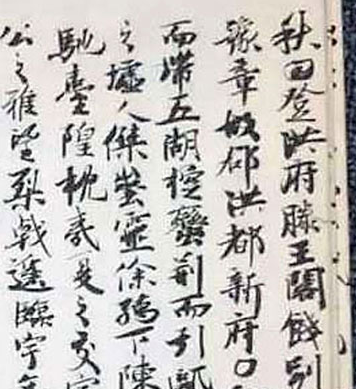 秋日登洪府滕王閣餞別
豫章故郡洪都新府〇
而帶五湖控蠻荊而引甌
之墟人傑地靈徐孺下陳
馳臺隍枕夷夏之交賓
公之雅望棨戟遙臨宇